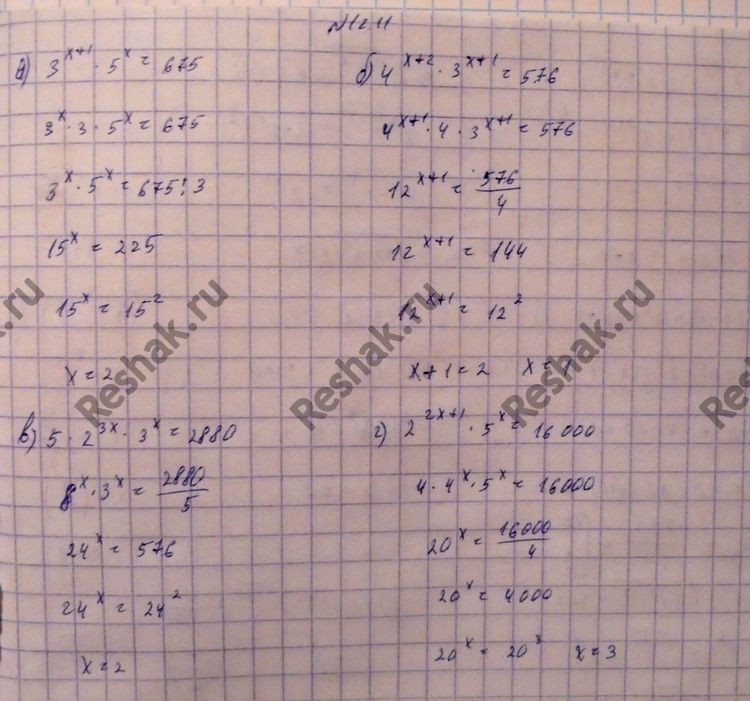 №12.11
а) 3^(x+1) · 5^x = 675
3^x · 3 · 5^x = 675
3^x · 5^x = 675 : 3
15^x = 225
15^x = 15^2
x = 2
б) 4^(x+2) · 3^(x+1) = 576
4^(x+1) · 4 · 3^(x+1) = 576
12^(x+1) = 576/4
12^(x+1) = 144
12^(x+1) = 12^2
x + 1 = 2 x = 1
в) 5 · 2^(3x) · 3^x = 2880
8^x · 3^x = 2880/5
24^x = 576
24^x = 24^2
x = 2
г) 2^(2x+1) · 5^x = 16000
4 · 4^x · 5^x = 16000
20^x = 16000/4
20^x = 4000
20^x = 20^3 x = 3
Reshak.ru
Reshak.ru
Reshak.ru
Reshak.ru